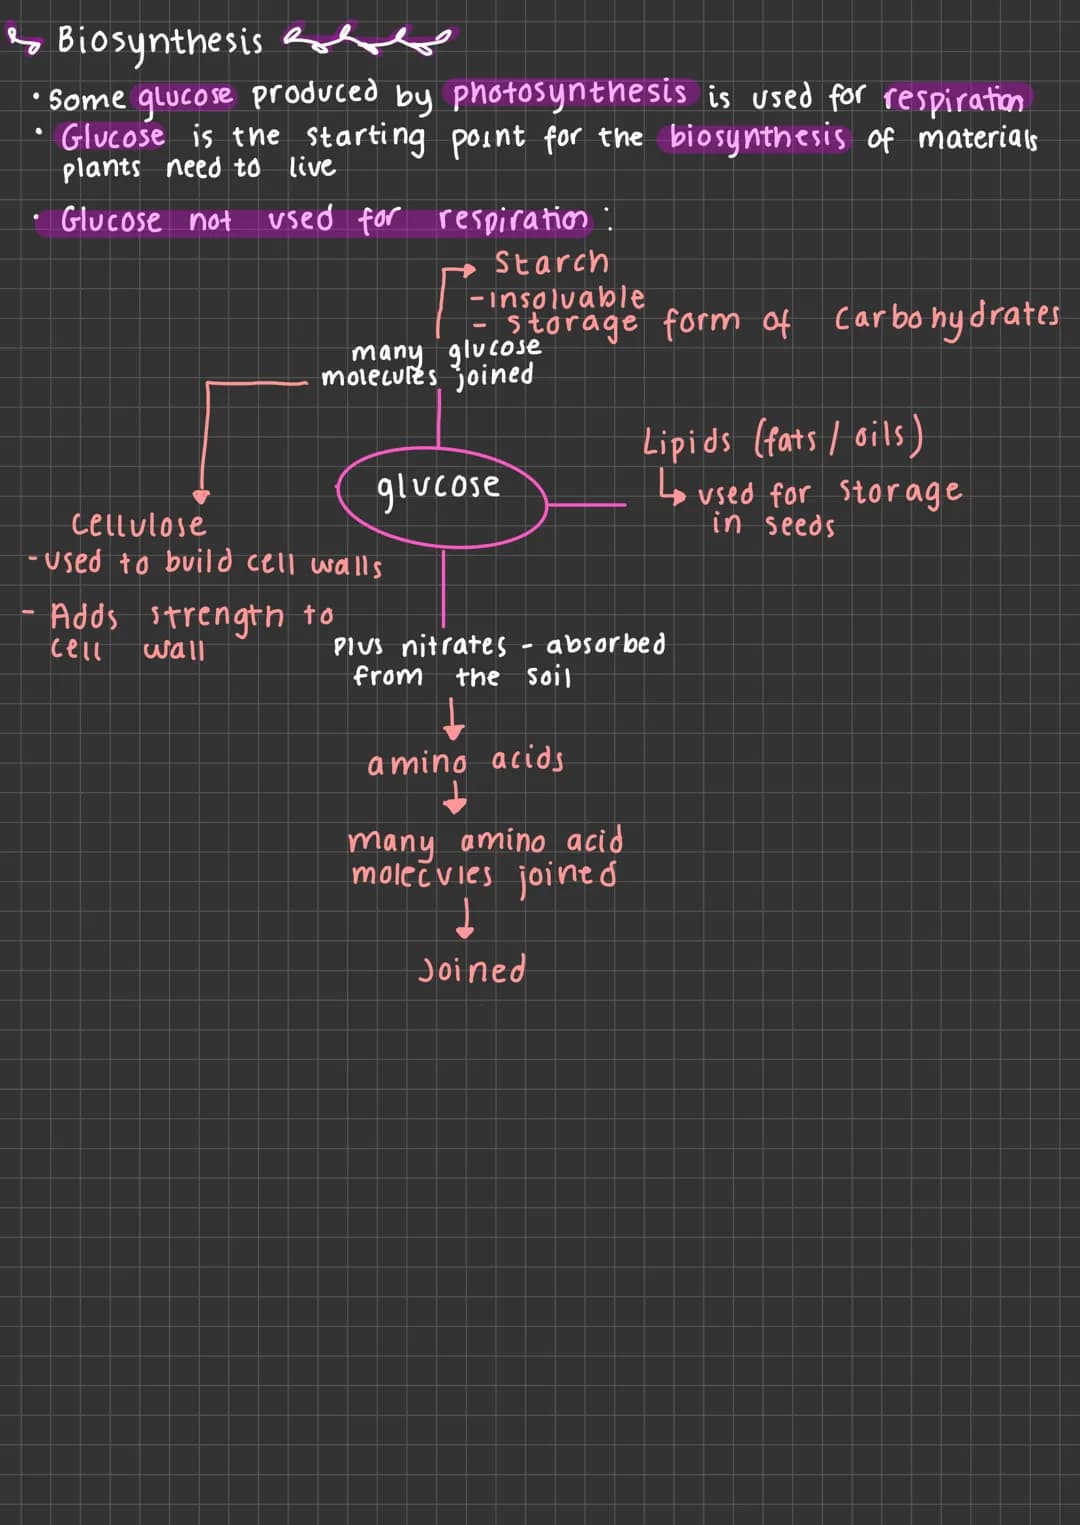 Biosynthesis
• Some glucose produced by photosynthesis is used for respiration
• Glucose is the starting point for the biosynthesis of materials
plants need to live
• Glucose not used for respiration :
Starch
- insolvable
- storage form of carbohydrates
many glucose
molecules joined
Lipids (fats / oils)
↳ used for storage
in seeds
glucose
cellulose
- used to build cell walls
- Adds strength to
cell wall
Plus nitrates - absorbed
from the soil
amino acids
many amino acid
molecules joined
Joined